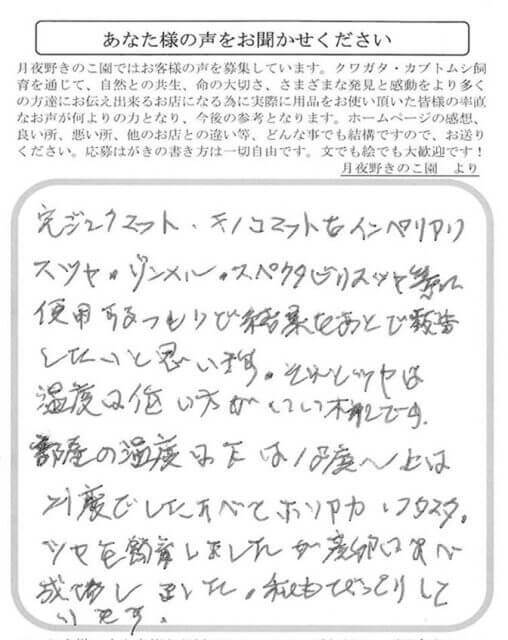 あなた様の声をお聞かせください
月夜野きのこ園ではお客様の声を募集しています。クワガタ・カブトムシ飼
育を通じて、自然との共生、命の大切さ、さまざまな発見と感動をより多く
の方達にお伝え出来るお店になる為に実際に用品をお使い頂いた皆様の率直
なお声が何よりの力となり、今後の参考となります。ホームページの感想、
良い所、悪い所、他のお店との違い等、どんな事でも結構ですので、お送り
ください。応募はがきの書き方は一切自由です。文でも絵でも大歓迎です!
月夜野きのこ園 より
完ジュクマット、キノコマットをインペリアリ
スツヤ。ゾンメル。スペクタビリスツヤ等に
使用するつもりで結果をあとで報告
したいと思います。それとツヤは
温度は低い方が
部屋の温度は下は18度〜上は
21度でしたすべてホソアカ
ツヤを飼育しましたが産卵はすべ
成功しました。私もびっくりして
います。